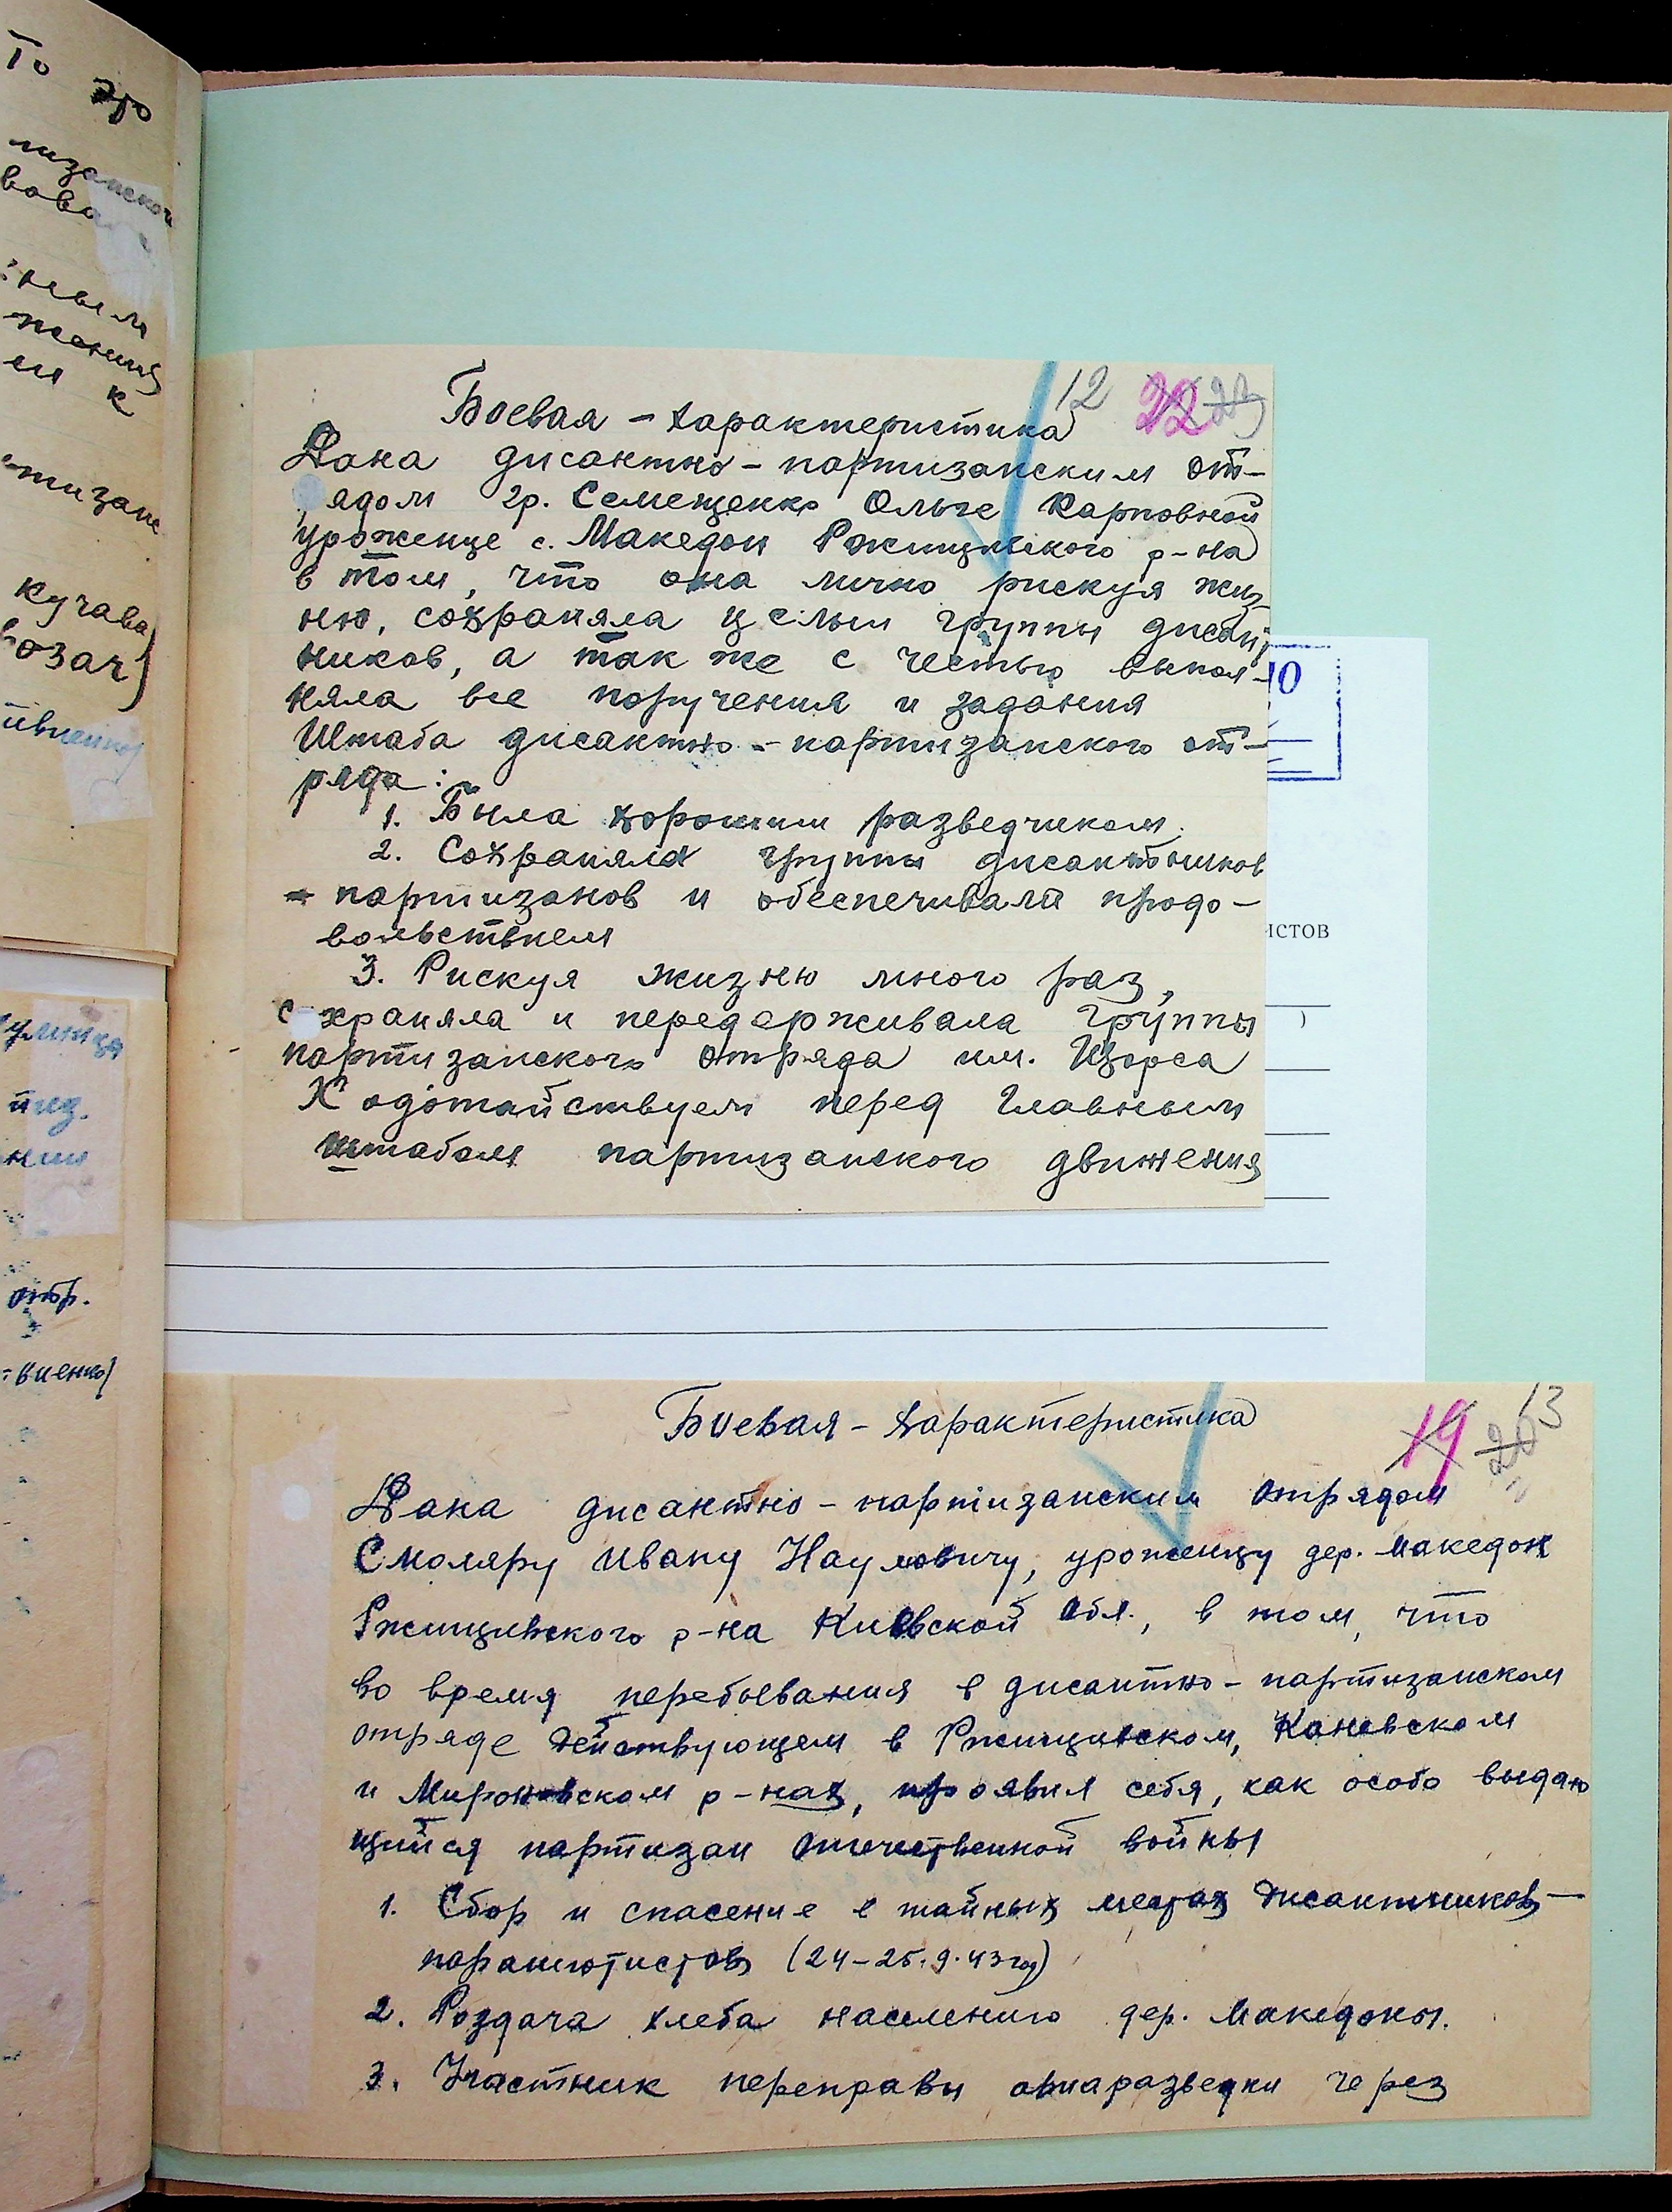 То это
кучава
возач)
отр.
12 22 23
Боевая - характеристика
Дана дисантно - партизанским от-
рядом гр. Семещенко Ольге Карповной
уроженце с. Македон Ржищевского р-на
в том, что она лично рискуя жиз
ню, сохраняла целые группы дисант
ников, а так же с честью выпол-
няла все поручения и задания
Штаба дисантно - партизанского от-
ряда:
1. Была хорошим разведчиком.
2. Сохраняла группы дисантников
- партизанов и обеспечивала продо-
вольствием
3. Рискуя жизню много раз,
сохраняла и передерживала группы
партизанского отряда им. Щорса
Ходотайствуем перед Главным
штабом партизанского движения
10
ИСТОВ
)
13
19 20
Боевая - характеристика
Дана дисантно - партизанским отрядом
Смоляру Ивану Наумовичу, уроженцу дер. Македон
Ржищевского р-на Киевской обл., в том, что
во время перебывания в дисантно - партизанском
отряде действующем в Ржищевском, Каневском
и Мироновском р-нах, проявил себя, как особо выдаю
щийся партизан отечественной войны
1. Сбор и спасение в тайных местах дисантников -
парашютистов (24-25.9.43 год)
2. Роздача хлеба населению дер. Македоны.
3. Участник переправы авиаразведки через